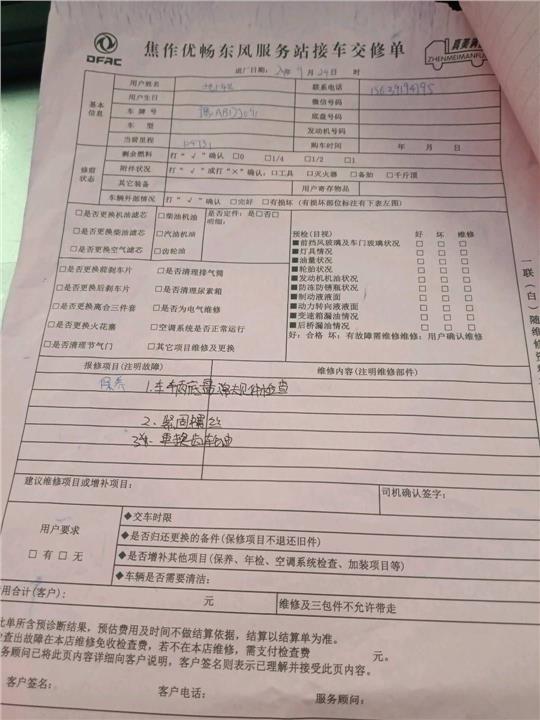 DFAC
焦作优畅东风服务站接车交修单
真美满
ZHENMEIMANFU
进厂日期: 年 9 月 24 日 时
基本信息
用户姓名 联系电话
用户生日 微信号码
车 牌 号 底盘号码
车 型 发动机号码
当前里程 购车时间 年 月 日
修前状态
剩余燃料 打“√”确认 □0 □1/4 □1/2 □1
附件状况 打“√”或打“×”确认: □工具 □灭火器 □备胎 □千斤顶
其它装备 用户寄存物品
车辆外部情况 打“√”确认 □完好 □有损坏 (有损坏部位标注有下表左图)
□是否更换机油滤芯 □柴油机油 是否定件: 是□否□
明细:
□是否更换柴油滤芯 □汽油机油
□是否更换空气滤芯 □齿轮油
预检(目视) 好 坏 维修
■前挡风玻璃及车门玻璃状况 □ □ □
■灯具情况 □ □ □
■油量状况 □ □ □
■轮胎状况 □ □ □
■发动机机油状况 □ □ □
■防冻防锈瓶状况 □ □ □
■制动液液面 □ □ □
■动力转向液液面 □ □ □
■变速箱漏油情况 □ □ □
■后桥漏油情况 □ □ □
好: 合格 坏: 有故障需维修维修: 用户确认维修
□是否更换前刹车片 □是否清理排气筒
□是否更换后刹车片 □是否清理尿素箱
□是否更换离合三件套 □是否为电气维修
□是否更换火花塞 □空调系统是否正常运行
□是否清理节气门 □其它项目维修及更换
报修项目(注明故障) 维修内容(注明维修部件)
保养 1.车辆底盘常规件检查
2. 紧固螺丝
3. 更换齿轮油
建议维修项目或增补项目:
司机确认签字:
用户要求
□有 □无
◆交车时限
◆是否归还更换的备件(保修项目不退还旧件)
◆是否增补其他项目(保养、年检、空调系统检查、加装项目等)
◆车辆是否需要清洁:
用合计(客户): 元 维修及三包件不允许带走
此单所含预诊断结果, 预估费用及时间不做结算依据, 结算以结算单为准。
检查出故障在本店维修免收检查费, 若不在本店维修, 需支付检查费 元。
务顾问已将此页内容详细向客户说明, 客户签名则表示已理解并接受此页内容。
客户签名: 客户电话: 服务顾问:
一联(白)随维修